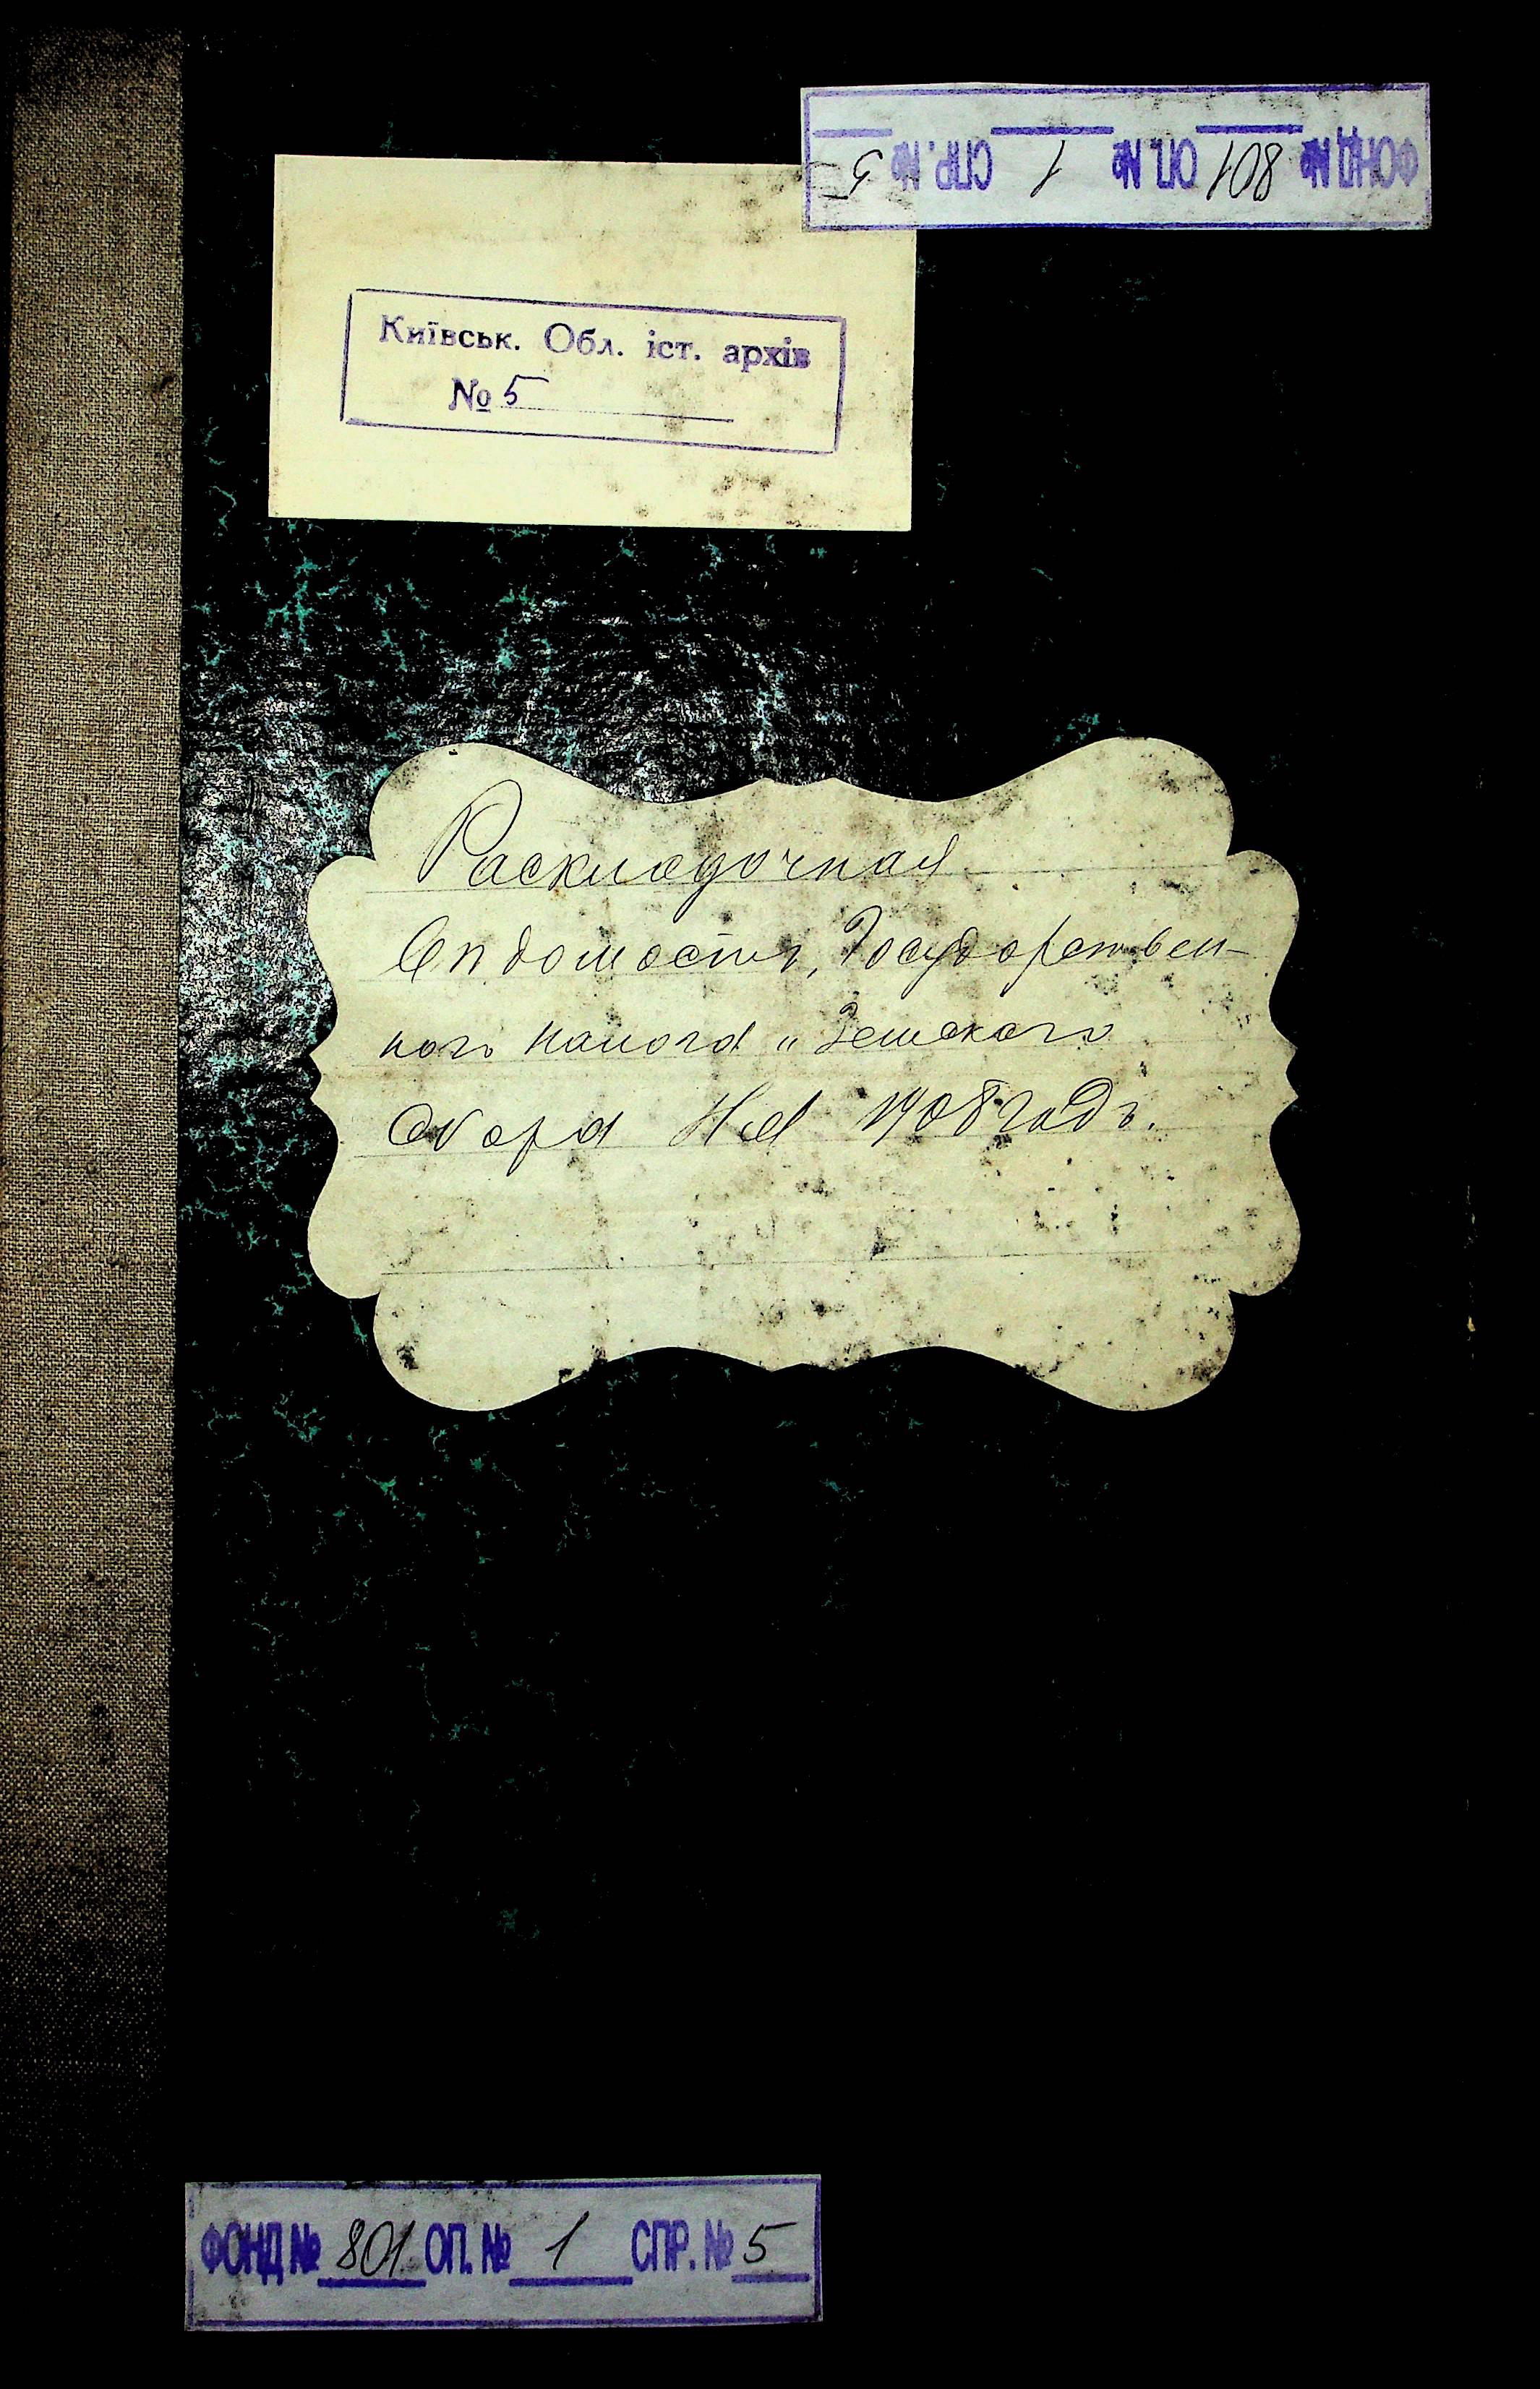 ФОНД № 801 ОП. № 1 СПР. № 5
Київськ. Обл. іст. архів
№ 5
Раскладочная
Вѣдомость, Государствен-
ного налога „ Земского
Сбора На 1908 годъ.
ФОНД № 801 ОП. № 1 СПР. № 5